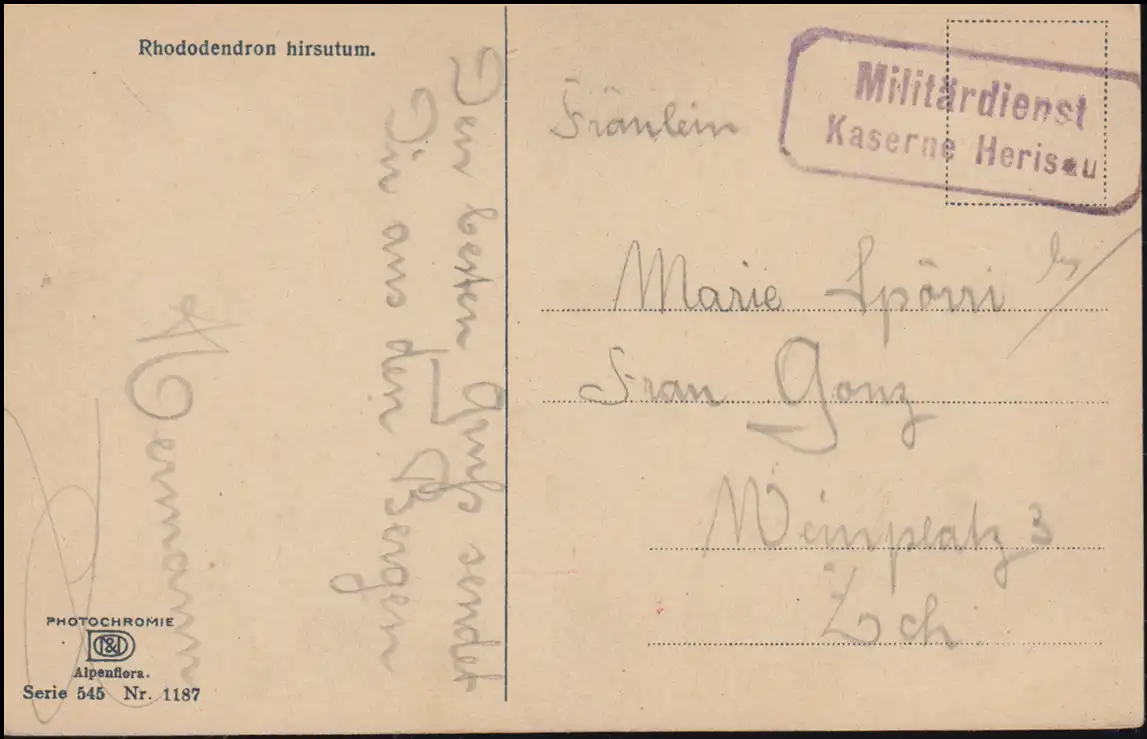 Rhododendron hirsutum.
Den besten Gruß sendet
Dir aus den Bergen
Hermann
PHOTOCHROMIE
Alpenflora.
Serie 545 Nr. 1187
Militärdienst
Kaserne Herisau
Fräulein
Marie Spörri
Frau Ganz
Weinplatz 3
Zch.